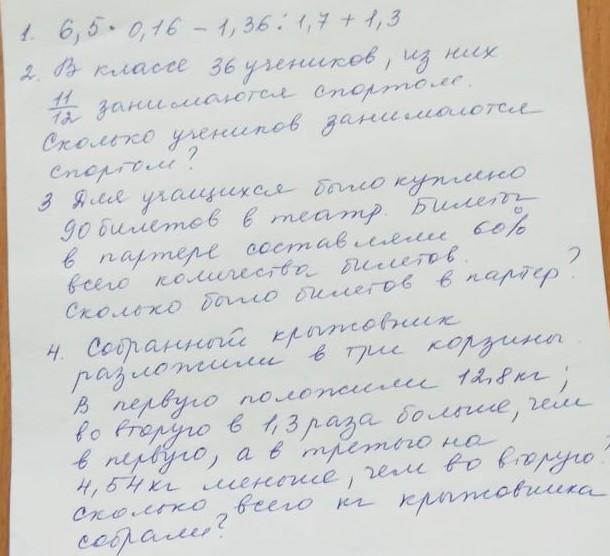 1. 6,5 · 0,16 - 1,36 : 1,7 + 1,3
2. В классе 36 учеников, из них
11/12 занимаются спортом.
Сколько учеников занимаются
спортом?
3 Для учащихся было куплено
90 билетов в театр. Билеты
в партере составляли 60%
всего количества билетов.
Сколько было билетов в партер?
4. Собранный крыжовник
разложили в три корзины.
В первую положили 12.8 кг;
во вторую в 1,3 раза больше, чем
в первую, а в третью на
4,54 кг меньше, чем во вторую?
Сколько всего кг крыжовника
собрали?